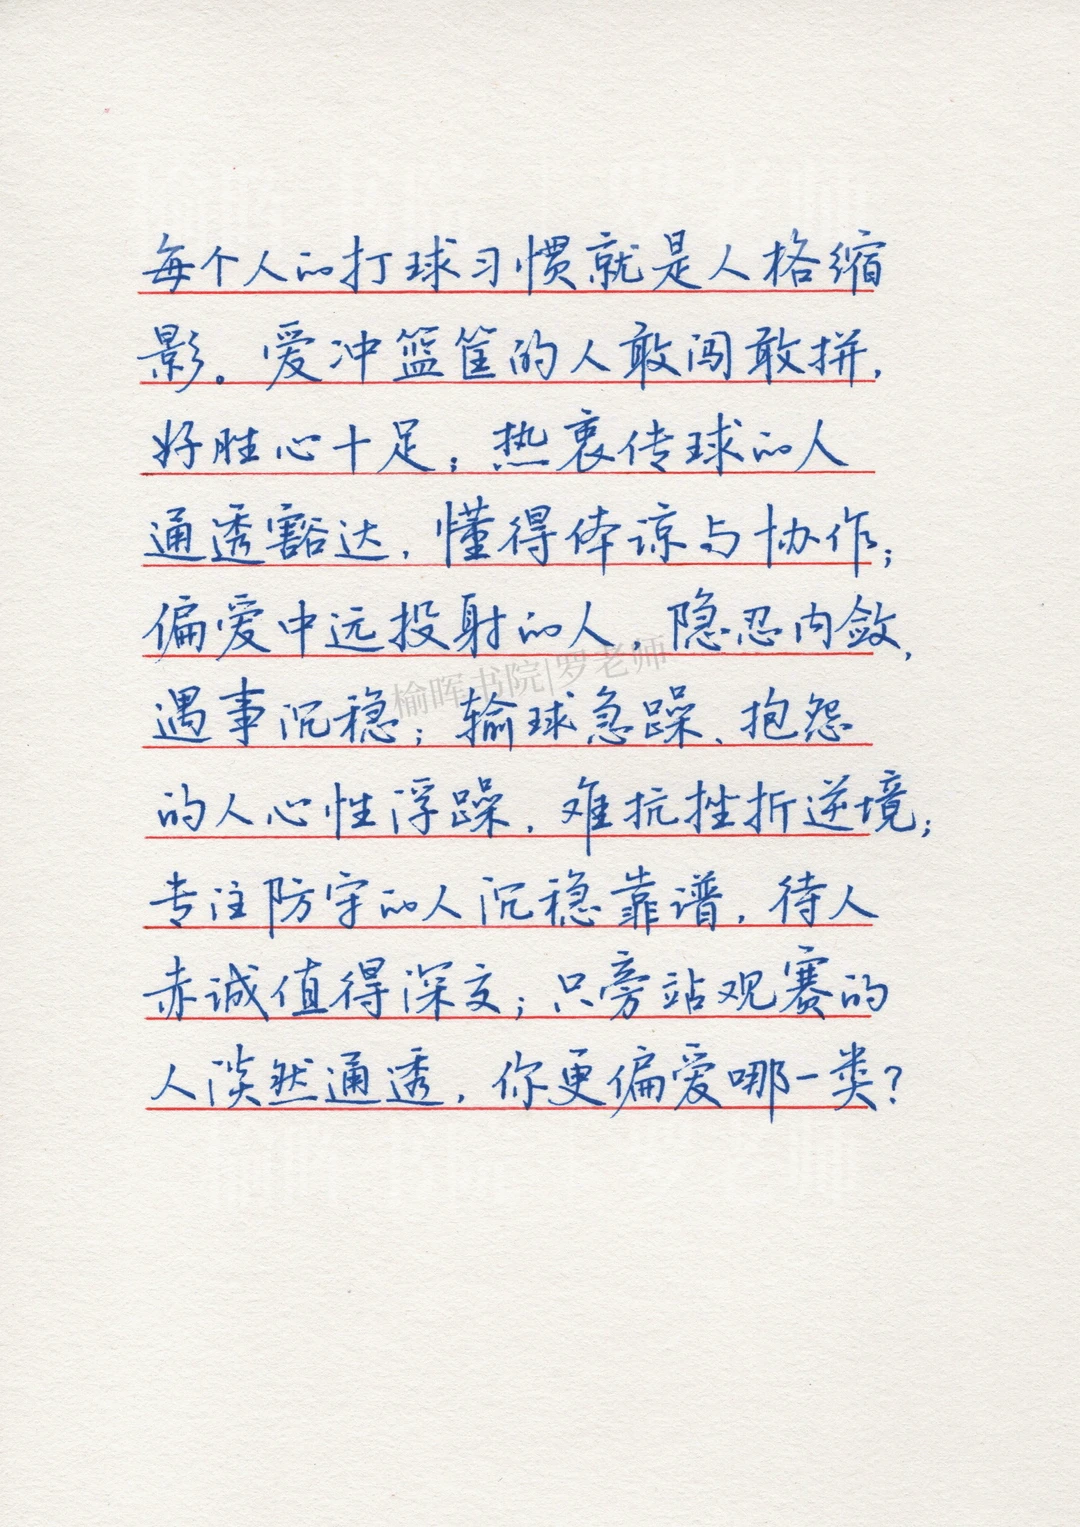 每个人的打球习惯就是人格缩
影。爱冲篮筐的人敢闯敢拼,
好胜心十足;热衷传球的人
通透豁达,懂得体谅与协作;
偏爱中远投射的人,隐忍内敛,
遇事沉稳;输球急躁、抱怨
的人心性浮躁,难抗挫折逆境;
专注防守的人沉稳靠谱,待人
赤诚值得深交;只旁站观赛的
人淡然通透,你更偏爱哪一类?
榆晖书院|罗老师